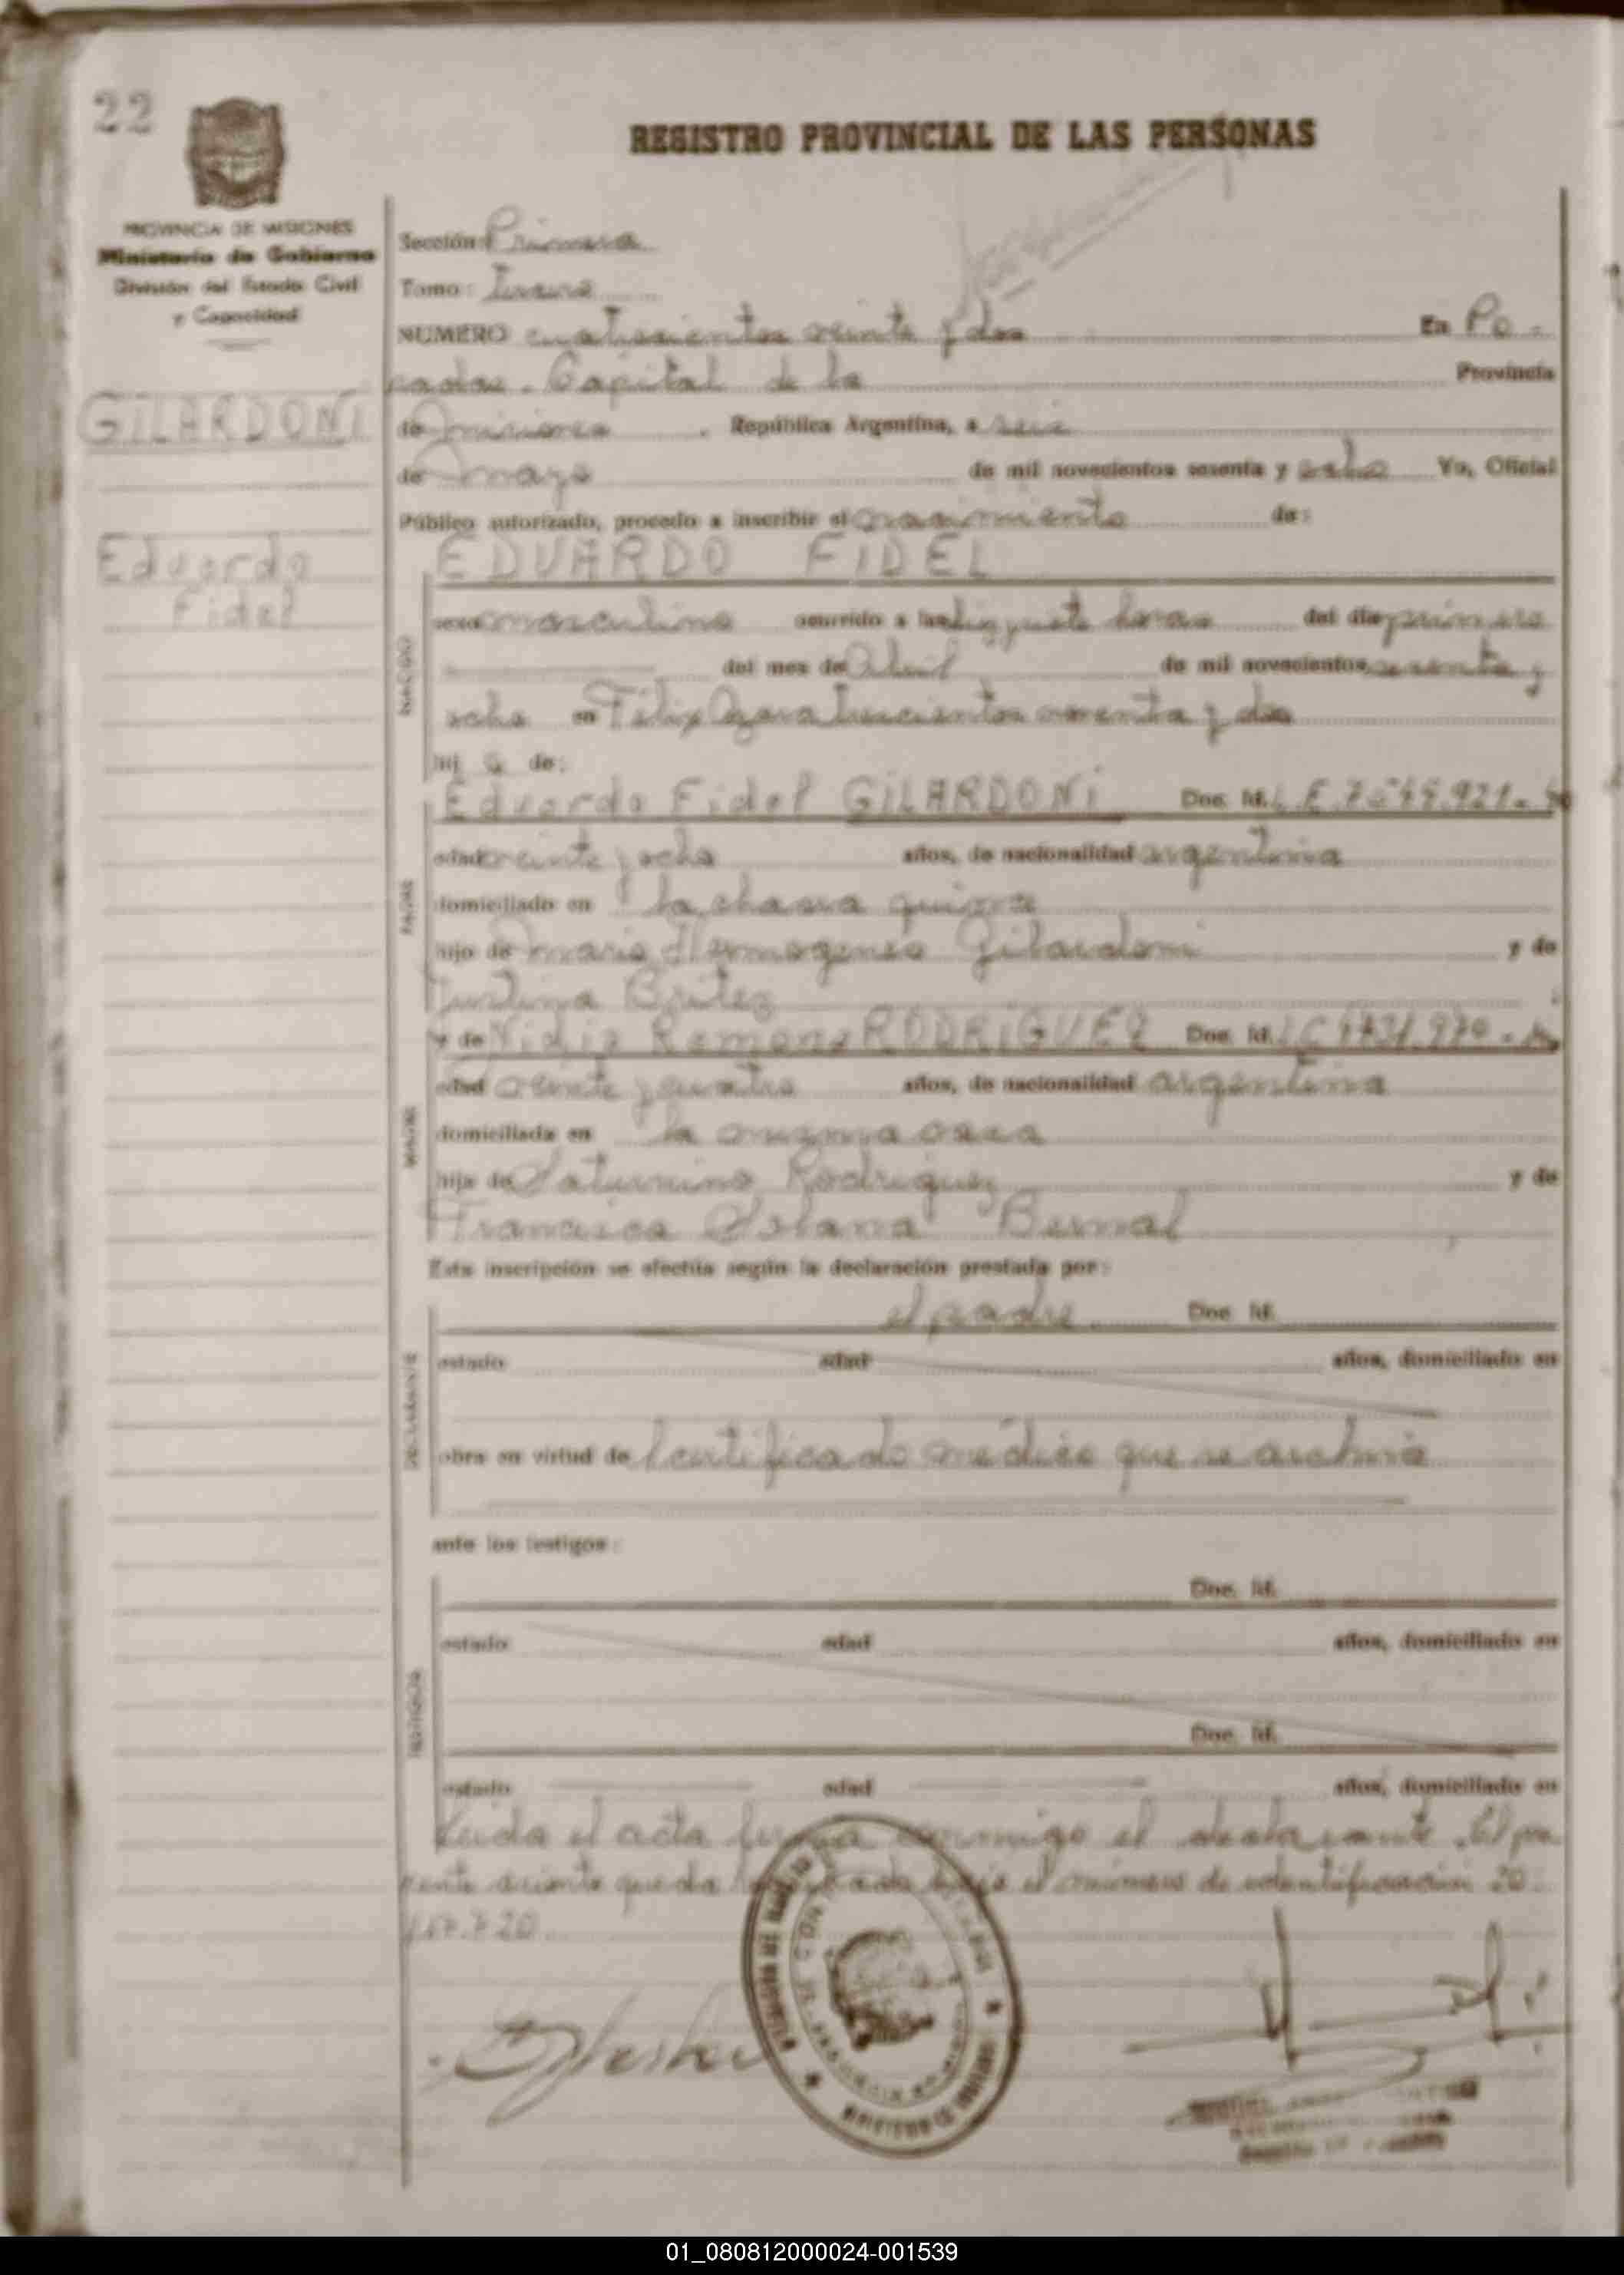 22
REGISTRO PROVINCIAL DE LAS PERSONAS
PROVINCIA DE MISIONES
Ministerio de Gobierno
División del Estado Civil
y Capacidad
Sección: Primera
Tomo:
NUMERO cuatrocientos veinte y dos En Po-
sadas. Capital de la Provincia
GILARDONI
de Misiones, República Argentina, a seis
de mayo de mil novecientos sesenta y ocho Yo, Oficial
Público autorizado, procedo a inscribir el nacimiento de:
Eduardo
Fidel
EDUARDO FIDEL
NACIDO
sexo masculino ocurrido a las horas del día primero
del mes de Abril de mil novecientos sesenta y
ocho en Félix Azara trescientos noventa y dos
hij o de:
Eduardo Fidel GILARDONI Doc. Id. L.E.
PADRE
edad veinte y ocho años, de nacionalidad argentina
domiciliado en la chacra quince
hijo de Mario Hermogenes Gilardoni y de
Justina Britez
y de Nidia Ramona RODRIGUEZ Doc. Id. L.C.
MADRE
edad veinte y cuatro años, de nacionalidad argentina
domiciliada en la misma casa
hija de Saturnino Rodriguez y de
Francisca Solana Bernal
Esta inscripción se efectúa según la declaración prestada por:
el padre Doc. Id.
DECLARANTE
estado edad años, domiciliado en
obra en virtud de certificado médico que se archiva
ante los testigos:
Doc. Id.
TESTIGOS
estado edad años, domiciliado en
Doc. Id.
estado edad años, domiciliado en
Leida el acta firma conmigo el declarante. El pre
sente asiento queda bajo el número de identificación 20.
01_080812000024-001539